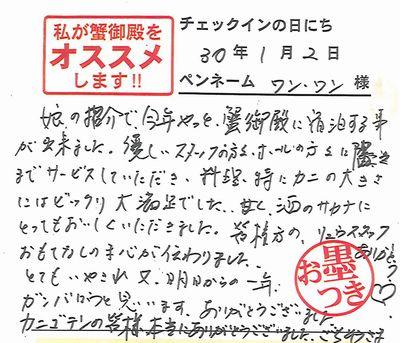 私が蟹御殿を
オススメ
します!!
チェックインの日にち
30年1月2日
ペンネーム ワン・ワン 様
娘の紹介で、今年やっと、蟹御殿に宿泊する事
が出来ました。優しいスタッフの方々、ホールの方々に
までサービスしていただき、料理、特にカニの大きさ
にはビックリ大満足でした。甘く、酒のサカナに
とってもおいしくいただきました。皆様方の、
おもてなしの心が伝わりました。
ありがとう
とても又、明日からの一年、
ガンバロウと思います。ありがとうございました
カニゴテンの皆様、本当にありがとうございました、ごちそうさま
お墨つき